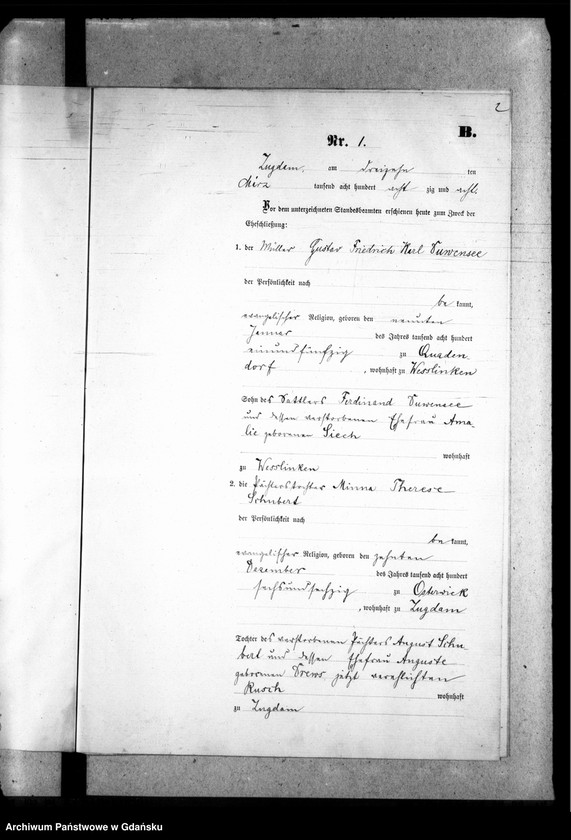 2
B.
Nr. 1.
Zugdam, am dreizehn ten
März tausend acht hundert acht zig und acht.
Vor dem unterzeichneten Standesbeamten erschienen heute zum Zweck der
Eheschließung:
1. der Müller Gustav Friedrich Karl Suwensee
der Persönlichkeit nach
be kannt,
evangelischer Religion, geboren den neunten
Januar des Jahres tausend acht hundert
einundfünfzig zu Quaden
dorf, wohnhaft zu Wesslinken
Sohn des Sattlers Ferdinand Suwensee
und dessen verstorbenen Ehefrau Ama
lie geborenen Siech
wohnhaft
zu Wesslinken
2. die Pächterstochter Minna Therese
Schubert
der Persönlichkeit nach
be kannt,
evangelischer Religion, geboren den zehnten
Dezember des Jahres tausend acht hundert
sechsundsechzig zu Osterwick
, wohnhaft zu Zugdam
Tochter des verstorbenen Pächters August Schu
bert und dessen Ehefrau Auguste
geborenen Drews jetzt verehelichten
Rusch wohnhaft
zu Zugdam
Archiwum Państwowe w Gdańsku